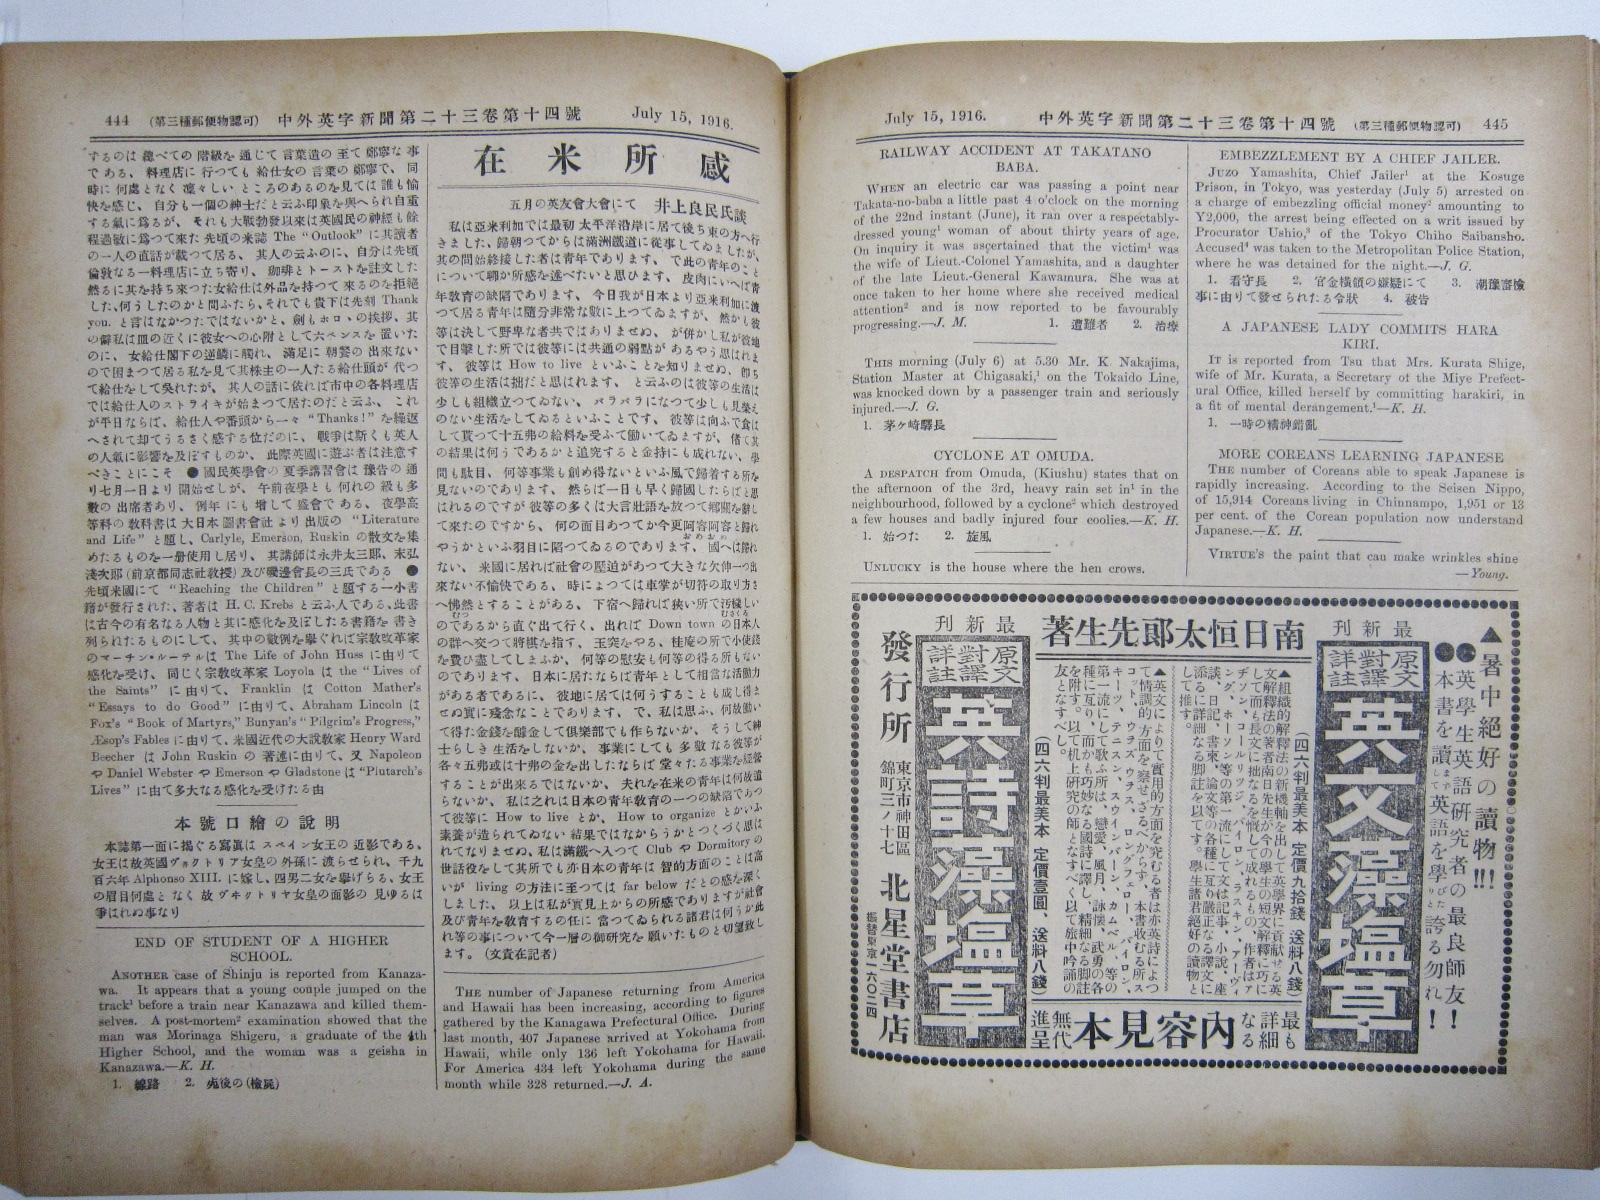 444 (第三種郵便物認可) 中外英字新聞第二十三卷第十四號 July 15, 1916.
するのは 總べての 階級を 通じて 言葉遣の 至て 鄭寧な 事
である、 料理店に 行つても 給仕女の 言葉の 鄭寧で、 同
時に 何處となく 凜々しい ところのあるのを見ては 誰も愉
快を感じ、 自分も一個の紳士だと云ふ印象を與へられ自重
する氣に爲るが、 それも大戰勃發以來は英國民の神經も餘
程過敏に爲つて來た 先頃の米誌 The "Outlook" に其讀者
の一人の直話が載つて居る、 其人の云ふのに、自分は先頃
倫敦なる一料理店に立ち寄り、 珈琲とトーストを註文した
然るに 其を持ち來つた女給仕は外品を持つて 來るのを拒絶
した、何うしたのかと問ふたら、それでも貴下は先刻 Thank
you. と言はなかつたではないかと、劍もホロヽの挨拶、其
の癖私は皿の近くに彼女への心附として六ペンスを 置いた
のに、 女給仕閣下の逆鱗に觸れ、 滿足に 朝餐の 出來ない
ので困まつて居る私を見て其株主の一人たる給仕頭が 代つ
て給仕をして吳れたが、 其人の話に依れば市中の各料理店
では給仕人のストライキが始まつて居たのだと云ふ、 これ
が平日ならば、給仕人や番頭から一々 "Thanks!" を繰返
へされて却てうるさく感する位だのに、 戰爭は斯くも英人
の人氣に影響を及ぼすものか、 此際英國に遊ぶ者は注意す
べきことにこそ ●國民英學會の 夏季講習會は 豫告の 通
り七月一日より 開始せしが、 午前夜學とも 何れの 級も多
數の 出席者あり、 例年 にも 增して 盛會で ある、 夜學高
等科の 教科書は 大日本 圖書會社 より 出版の "Literature
and Life" と題し、Carlyle, Emerson, Ruskin の散文を集
めたるものを一册使用し居り、 其講師は永井太三郎、末弘
淺次郎 (前京都同志社教授) 及び磯邊會長の三氏である ●
先頃米國にて "Reaching the Children" と題する一小書
籍が發行された、著者は H. C. Krebs と云ふ人である、此書
は古今の有名なる人物と其に感化を及ぼしたる書籍を 書き
列られたるものにして、 其中の數例を擧ぐれば宗敎改革家
のマーチン・ルーテルは The Life of John Huss に由りて
感化を受け、 同じく宗敎改革家 Loyola は the "Lives of
the Saints" に由りて、 Franklin は Cotton Mather's
"Essays to do Good" に由りて、Abraham Lincoln は
Fox's "Book of Martyrs," Bunyan's "Pilgrim's Progress,"
Æsop's Fables に由りて、米國近代の大説教家 Henry Ward
Beecher は John Ruskin の 著述に由りて、又 Napoleon
や Daniel Webster や Emerson や Gladstone は "Plutarch's
Lives" に由て多大なる感化を受けたる由
本號口繪の説明
本誌第一面に揭ぐる寫眞は スペイン女王の 近影である、
女王は故英國ヴヰクトリア女皇の 外孫に 渡らせられ、千九
百六年 Alphonso XIII. に嫁し、四男二女を擧げらる、女王
の眉目何處と なく 故 ヴヰクトリヤ女皇の面影の 見ゆるは
爭はれぬ事なり
END OF STUDENT OF A HIGHER
SCHOOL.
ANOTHER case of Shinju is reported from Kanaza-
wa. It appears that a young couple jumped on the
track¹ before a train near Kanazawa and killed them-
selves. A post-mortem² examination showed that the
man was Morinaga Shigeru, a graduate of the 4th
Higher School, and the woman was a geisha in
Kanazawa.—K. H.
1. 線路 2. 死後の(檢屍)
在米所感
五月の英友會大會にて 井上良民氏談
私は亞米利加では最初 太平洋沿岸に 居て 後ち東の方へ行
きました、歸朝つてからは滿洲鐵道に從事してゐましたが、
其の間始終接した者は靑年であります、 で此の靑年のこと
について聊か所感を述べたいと思ひます、 皮肉にいへば靑
年敎育の缺陷であります、 今日我が日本より亞米利加に渡
つて居る靑年は隨分非常な數に上つてゐますが、 然かも彼
等は決して野卑な者共ではありませぬ、 が併かし私が彼地
で目擊した所では彼等には共通の弱點が あるやう思はれま
す、 彼等は How to live といふことを知りませぬ、 卽ち
彼等の生活は拙だと思はれます、 と云ふのは彼等の生活は
少しも組織立つてゐない、 バラバラになつて少しも見榮え
のない生活をしてゐるといふことです、 彼等は向ふで食は
して貰つて十五弗の給料を受ふて働いてゐますが、 偖て其
の結果は何うであるかと追究すると金持にも成れない、學
問も駄目、 何等事業も創め得ないといふ風で歸着する所を
見ないのであります、 然らば一日も早く歸國したらばと思
はれるのですが 彼等の多くは大言壯語を放つて鄕關を辭し
て來たのですから、 何の面目あつてか今更阿容阿容と歸れ
やうかといふ羽目に陷つてゐるのであります、 國へは歸れ
ない、 米國に居れば社會の壓迫があつて大きな欠伸一つ出
來ない不愉快である、 時によつては車掌が切符の取り方さ
へ怫然とすることがある、 下宿へ歸れば狹い所で汚穢しい
のであるから直ぐ出て行く、出れば Down town の日本人
の群へ交つて將棋を指す、 玉突をやる、桂庵の所で小使錢
を費ひ盡してしまふか、 何等の慰安も何等の得る所もない
のであります、 日本に居たならば靑年として相當な活動力
がある者であるに、 彼地に居ては何うすることも成し得ま
せぬ實に殘念なことであります、 で、私は思ふ、何故働い
て得た金錢を醵金して俱樂部でも作らないか、 そうして紳
士らしき 生活をしないか、 事業にしても 多數 なる彼等が
各々五弗或は十弗の金を出したならば 堂々たる事業を經營
することが出來るではないか、 夫れを在米の靑年は何故遣
らないか、 私は之れは日本の靑年敎育の一つの缺陷であつ
て彼等に How to live とか、How to organize とかいふ
素養が造られてゐない 結果ではなからうかとつくづく思は
れてなりませぬ、私は滿鐵へ入つて Club や Dormitory の
世話役をして其所でも亦日本の靑年は 智的方面のことは高
いが living の方法に至つては far below だとの感を深く
しました、 以上は私が實見上からの所感でありますが社會
及び靑年を敎育するの任に 當つてゐられる諸君は何うか此
れ等の事について今一層の御硏究を 願いたものと切望致し
ます。 (文責在記者)
THE number of Japanese returning from America
and Hawaii has been increasing, according to figures
gathered by the Kanagawa Prefectural Office. During
last month, 407 Japanese arrived at Yokohama from
Hawaii, while only 136 left Yokohama for Hawaii.
For America 434 left Yokohama during the same
month while 328 returned.—J. A.
July 15, 1916. 中外英字新聞第二十三卷第十四號 (第三種郵便物認可) 445
RAILWAY ACCIDENT AT TAKATANO
BABA.
WHEN an electric car was passing a point near
Takata-no-baba a little past 4 o'clock on the morning
of the 22nd instant (June), it ran over a respectably-
dressed young¹ woman of about thirty years of age.
On inquiry it was ascertained that the victim¹ was
the wife of Lieut.-Colonel Yamashita, and a daughter
of the late Lieut.-General Kawamura. She was at
once taken to her home where she received medical
attention² and is now reported to be favourably
progressing.—J. M. 1. 遭難者 2. 治療
THIS morning (July 6) at 5.30 Mr. K. Nakajima,
Station Master at Chigasaki,¹ on the Tokaido Line,
was knocked down by a passenger train and seriously
injured.—J. G.
1. 茅ヶ崎驛長
CYCLONE AT OMUDA.
A DESPATCH from Omuda, (Kiushu) states that on
the afternoon of the 3rd, heavy rain set in¹ in the
neighbourhood, followed by a cyclone² which destroyed
a few houses and badly injured four coolies.—K. H.
1. 始つた 2. 旋風
UNLUCKY is the house where the hen crows.
EMBEZZLEMENT BY A CHIEF JAILER.
JUZO Yamashita, Chief Jailer¹ at the Kosuge
Prison, in Tokyo, was yesterday (July 5) arrested on
a charge of embezzling official money² amounting to
Y2,000, the arrest being effected on a writ issued by
Procurator Ushio,³ of the Tokyo Chiho Saibansho.
Accused⁴ was taken to the Metropolitan Police Station,
where he was detained for the night.—J. G.
1. 看守長 2. 官金橫領の嫌疑にて 3. 潮豫審檢
事に由りて發せられたる令狀 4. 被告
A JAPANESE LADY COMMITS HARA
KIRI.
IT is reported from Tsu that Mrs. Kurata Shige,
wife of Mr. Kurata, a Secretary of the Miye Prefect-
ural Office, killed herself by committing harakiri, in
a fit of mental derangement.¹—K. H.
1. 一時の精神錯亂
MORE COREANS LEARNING JAPANESE
THE number of Coreans able to speak Japanese is
rapidly increasing. According to the Seisen Nippo,
of 15,914 Coreans living in Chinnampo, 1,951 or 13
per cent. of the Corean population now understand
Japanese.—K. H.
VIRTUE's the paint that can make wrinkles shine
—Young.
▲暑中絕好の讀物!!!
●英學生英語硏究者の最良師友!
●本書を讀まずして英語を學びたりと誇る勿れ!
南日恒太郎先生著
最新刊
原文對譯詳註
英文藻塩草
(四六判最美本 定價九拾錢、送料八錢)
▲組織的解釋法の新機軸を出して英學界に貢献せる英
文解釋法の著者南日先生が今の學生の短文解釋に巧に
して而も長文に拙なるを慨して成れるもの、作者はア
ヂソン、コールリッジ、バイロン、ラスキン、アーヴィ
ング、ホーソン等の第一流にして文は記事、小説、座
談、日記、書柬、論文等の各種に亙り嚴正なる譯文に
添るに詳細なる脚註を以てす。學生諸君絕好の讀物と
して推す。
最新刊
原文對譯詳註
英詩藻塩草
(四六判最美本 定價壹圓、送料八錢)
▲英文によりて實用的方面を究むる者は亦英詩によつ
て情調的方面を察せざるべからず、本書收むる所ス
コット、ウヲズウヲス、ロングフェロー、バイロン、
キーツ、テニスン、スウインバーン、カムベル、等の
第一流にして歌ふ所は、戀愛、風月、詠懷、武勇の各
種に亙り、而かも巧妙なる國詩に譯し、精細なる脚註
を附す。以て机上硏究の師となすべく以て旅中吟誦の
友となすべし。
最も詳細なる內容見本無代進呈
發行所 東京市神田區錦町三ノ十七 北星堂書店 振替東京一六〇二四